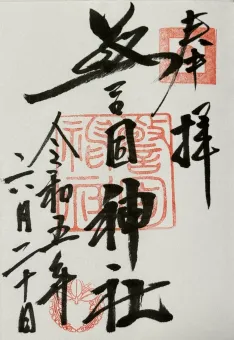 奉拝
警固神社
令和五年
六月二十日